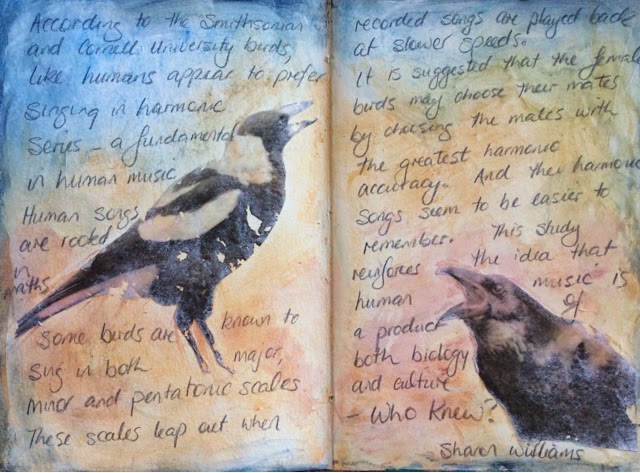 According to the Smithsonian
and Cornell University birds,
like humans appear to prefer
singing in harmonic
series - a fundamental
in human music
Human songs
are rooted
in
maths
Some birds are known to
sing in both major,
minor and pentatonic scales
These scales leap out when
recorded songs are played back
at slower speeds.
It is suggested that the female
birds may choose their mates
by choosing the males with
the greatest harmonic
accuracy. And their harmonic
songs seem to be easier to
remember. This study
reinforces the idea that
human music is
a product of
both biology
and culture
- Who Knew?
Sharen Williams